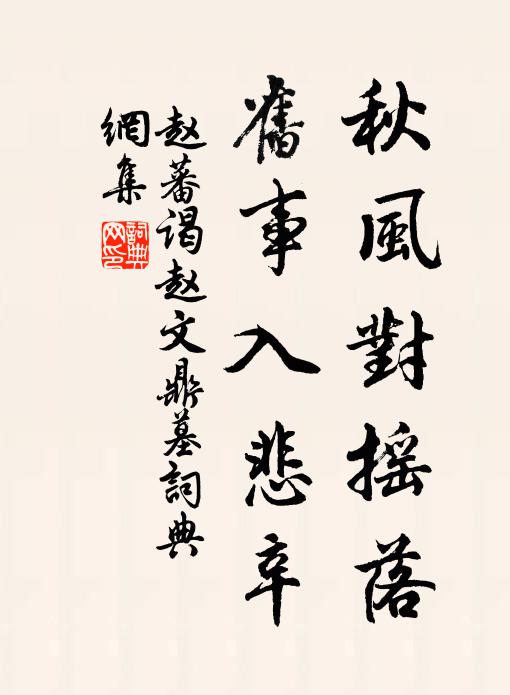 秋風對搖落
舊事入悲辛
赵蕃谒赵文鼎墓詞典
網集
詞典網印